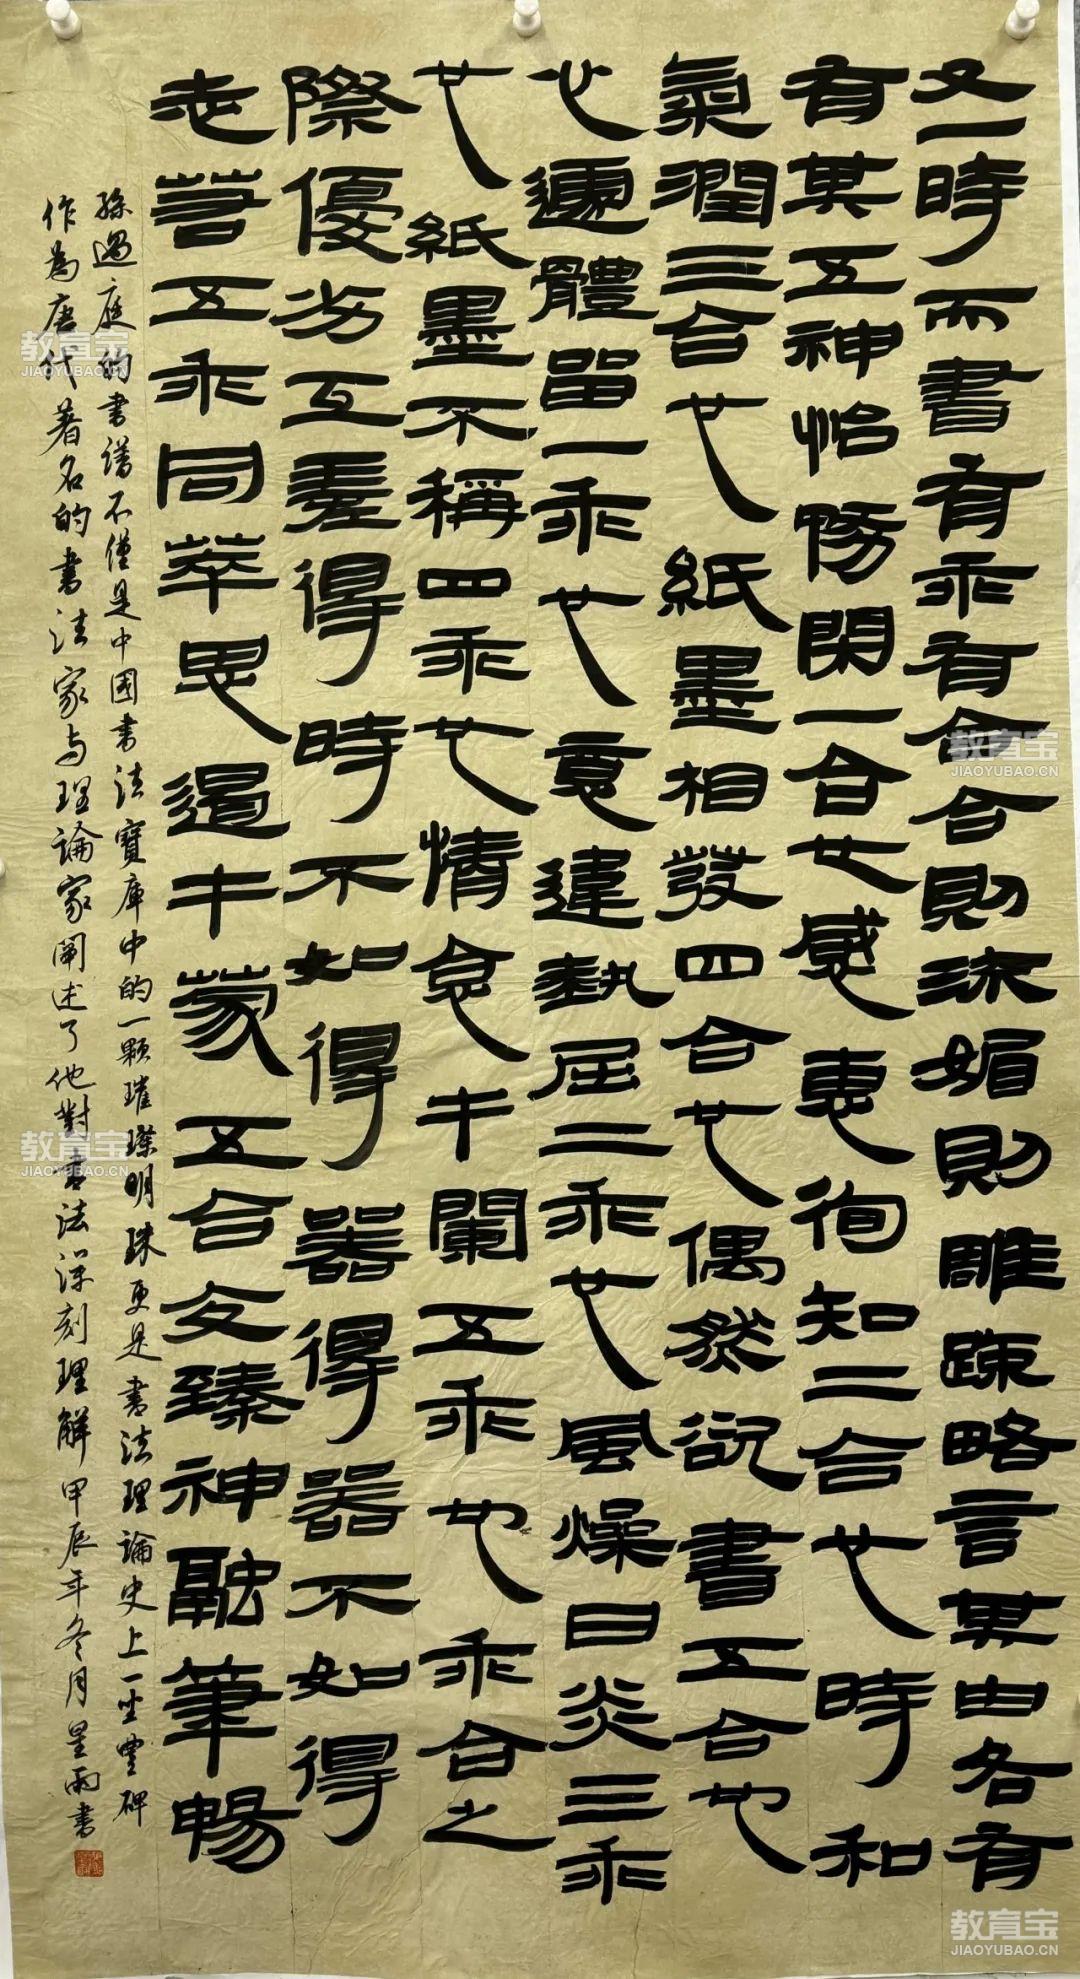 又一時而書有乖有合合則流媚則雕疎略言其由各有
有其五神怡務閑一合也感惠徇知二合也時和
氣潤三合也紙墨相發四合也偶然欲書五合也
心遽體留一乖也意違勢屈二乖也風燥日炎三乖
也紙墨不稱四乖也情怠手闌五乖也乖合之
際優劣互差得時不如得器得器不如得
志若五乖同萃思遏手蒙五合交臻神融筆暢
孫過庭的書譜不僅是中國書法寶庫中的一顆璀璨明珠更是書法理論史上一坐豐碑
作為唐代著名的書法家与理論家闡述了他對書法深刻理解甲辰年冬月星雨書
教育宝
JIAOYUBAO.CN
教育宝
JIAOYUBAO.CN
教育宝
JIAOYUBAO.CN
教育宝
JIAOYUBAO.CN